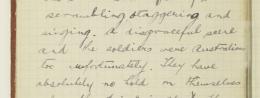 scrambling staggering and
singing. A disgraceful scene
and the soldiers were Australians
too unfortunately. They have
absolutely no hold on themselves